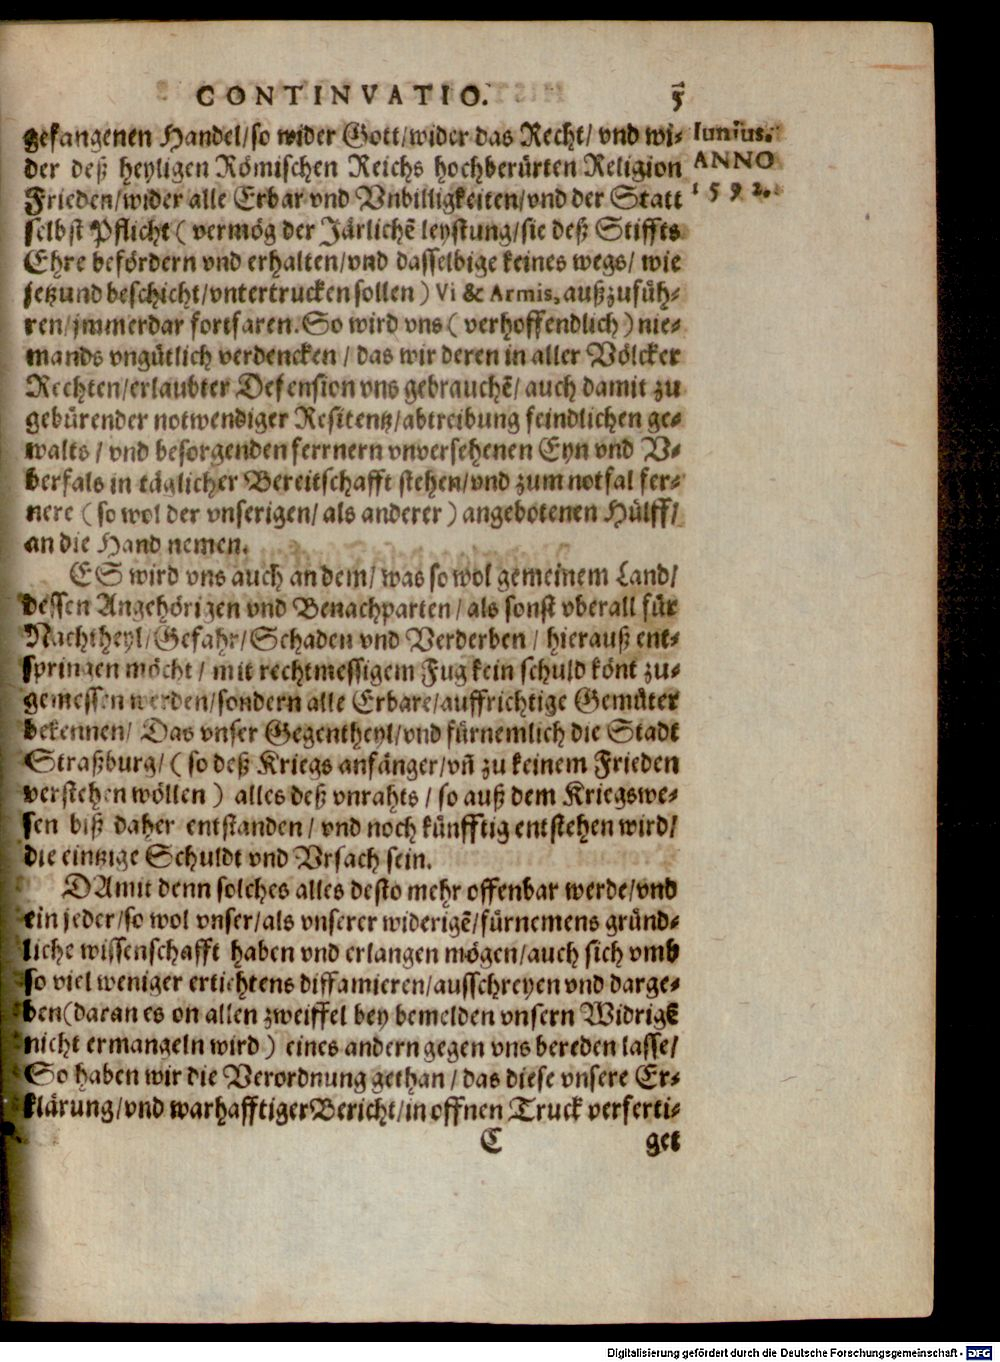 CONTINVATIO. 5
gefangenen Handel/so wider Gott/wider das Recht/ vnd wi-
Iunius.
der deß heyligen Römischen Reichs hochberürten Religion
ANNO
Frieden/wider alle Erbar vnd Vnbilligkeiten/vnd der Statt
1592.
selbst Pflicht ( vermög der Järlichẽ leystung/sie deß Stiffts
Ehre befördern vnd erhalten/vnd dasselbige keines wegs/ wie
jetzund beschicht/vntertrucken sollen ) Vi & Armis, außzufüh-
ren/jmmerdar fortfaren. So wird vns ( verhoffendlich ) nie-
mands vngütlich verdencken / das wir deren in aller Völcker
Rechten/erlaubter Defension vns gebrauchẽ/ auch damit zu
gebürender notwendiger Resitentz/abtreibung feindlichen ge-
walts / vnd besorgenden ferrnern vnversehenen Eyn vnd V-
berfals in täglicher Bereitschafft stehen/vnd zum notfal fer-
nere ( so wol der vnserigen/ als anderer ) angebotenen Hülff/
an die Hand nemen.
ES wird vns auch an dem/ was so wol gemeinem Land/
dessen Angehörigen vnd Benachparten/ als sonst vberall für
Nachtheyl/Gefahr/Schaden vnd Verderben / hierauß ent-
springen möcht / mit rechtmessigem Fug kein schuld könt zu-
gemessen werden/sondern alle Erbare/auffrichtige Gemüter
bekennen/ Das vnser Gegentheyl/vnd fürnemlich die Stadt
Straßburg/ ( so deß Kriegs anfänger/vñ zu keinem Frieden
verstehen wöllen ) alles deß vnrahts / so auß dem Kriegswe-
sen biß daher entstanden/ vnd noch künfftig entstehen wird/
die eintzige Schuldt vnd Vrsach sein.
DAmit denn solches alles desto mehr offenbar werde/vnd
ein jeder/so wol vnser/als vnserer widerigẽ/fürnemens gründ-
liche wissenschafft haben vnd erlangen mögen/auch sich vmb
so viel weniger ertichtens diffamieren/ausschreyen vnd darge-
ben(daran es on allen zweiffel bey bemelden vnsern Widrigẽ
nicht ermangeln wird ) eines andern gegen vns bereden lasse/
So haben wir die Verordnung gethan / das diese vnsere Er-
klärung/vnd warhafftiger Bericht/in offnen Truck verferti-
C get
Digitalisierung gefördert durch die Deutsche Forschungsgemeinschaft - DFG